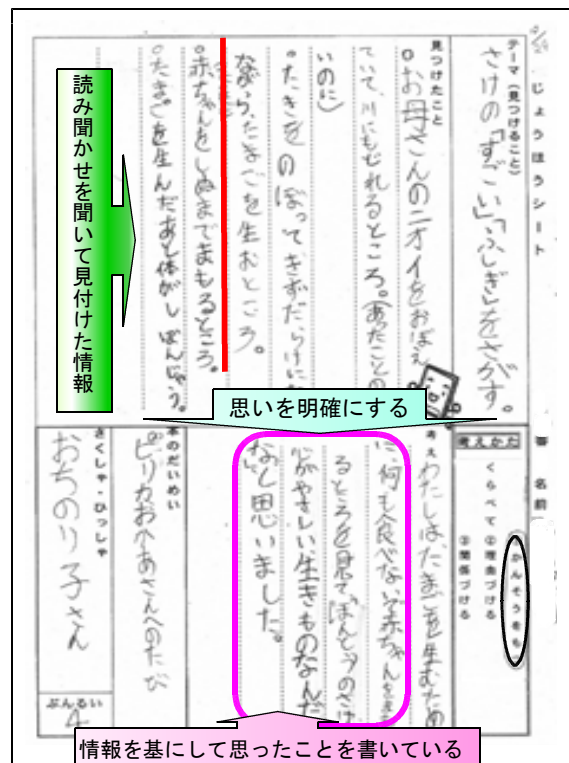 9/29
じょうほうシート
名前
テーマ(見つけること)
さけの「すごい」「ふしぎ」をさがす。
見つけたこと
。お母さんのニオイをおぼえ
ていて、川にもどれるところ。(あったことの
いのに)
。たきをのぼってきずだらけにな
ながら、たまごを生むところ。
。赤ちゃんをしぬまでまもるところ。
。たまごを生んだあと体が
読み聞かせを聞いて見付けた情報
思いを明確にする
考えかた
かんそうをもつ
くらべて
②理由づける
③関係づける
考え
わたしはたまごを生むため
に、何も食べないで赤ちゃんを
るところを見て、ほんとうのさけ
心がやさしい生きものなんだ
なと思いました。
本のだいめい
ピリカおかあさんへのたび
さくしゃ・ひっしゃ
おちのり子さん
ぶんるい
4
情報を基にして思ったことを書いている